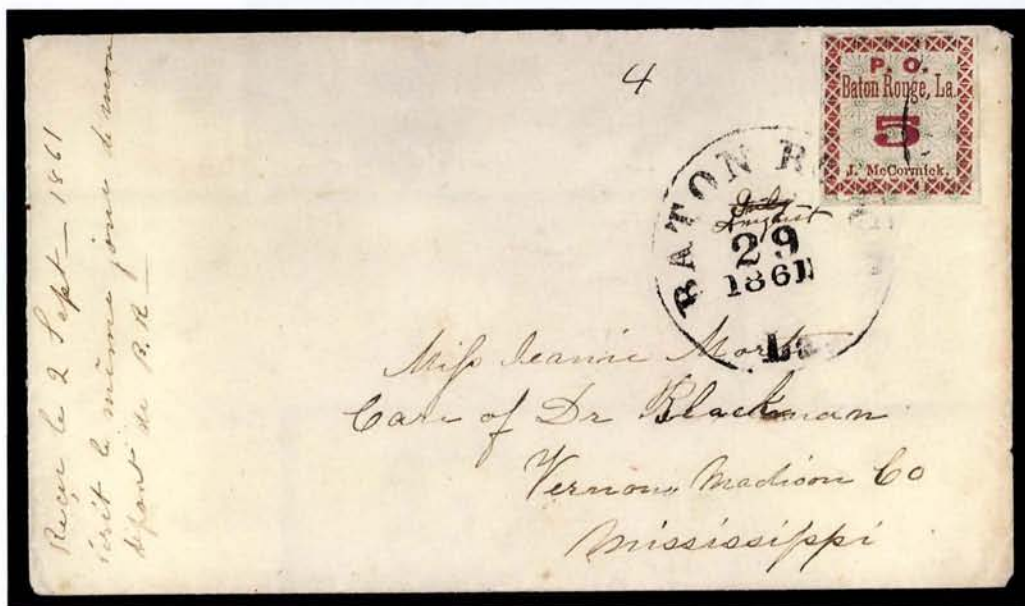 4
P. O.
Baton Rouge, La.
5
J. McCormick.
BATON R
July
August
29
1861
La
Miss Jeannie Mort
Care of Dr Blackman
Vernon, Madison Co
Mississippi
Reçu le 2 Sept — 1861
écrit le même jour de mon
départ de B.R —